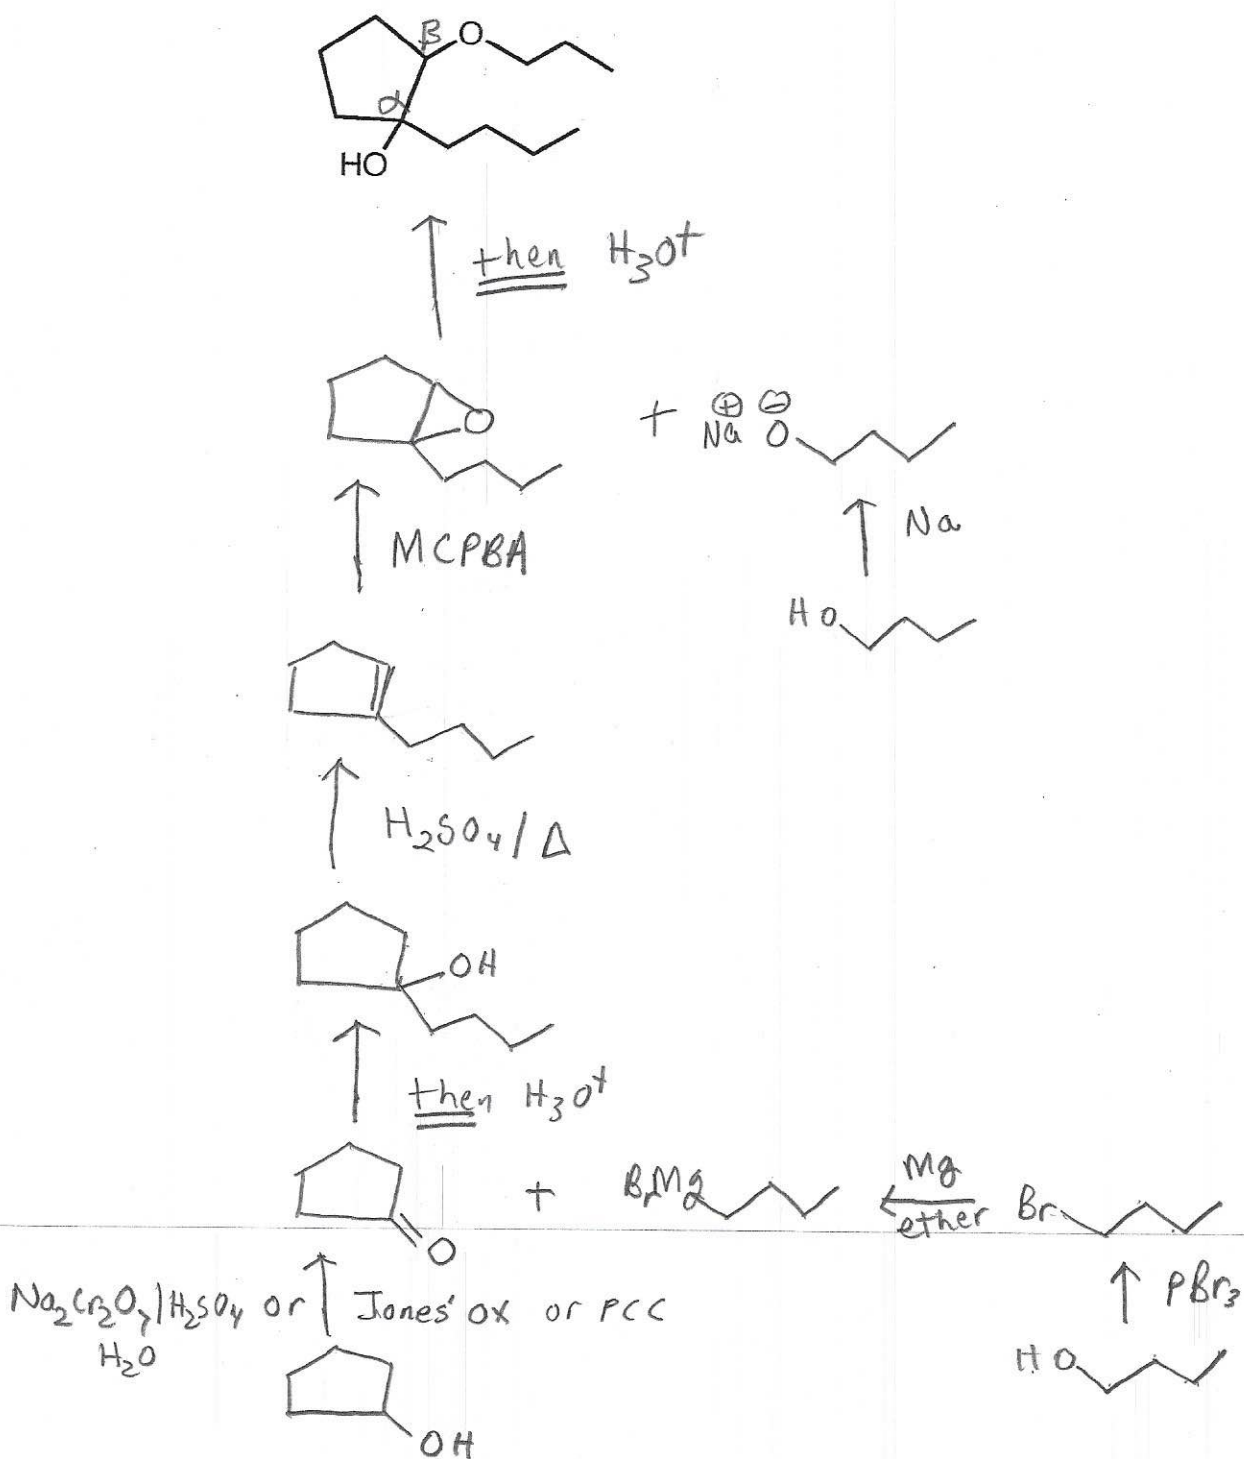 β O
α
HO
then H₃O⁺
O + Na⊕ O⊖
MCPBA
Na
HO
H₂SO₄/Δ
OH
then H₃O⁺
+ BrMg Mg Br
ether
O
Na₂Cr₂O₇/H₂SO₄ or Jones' ox or PCC PBr₃
H₂O
HO
OH